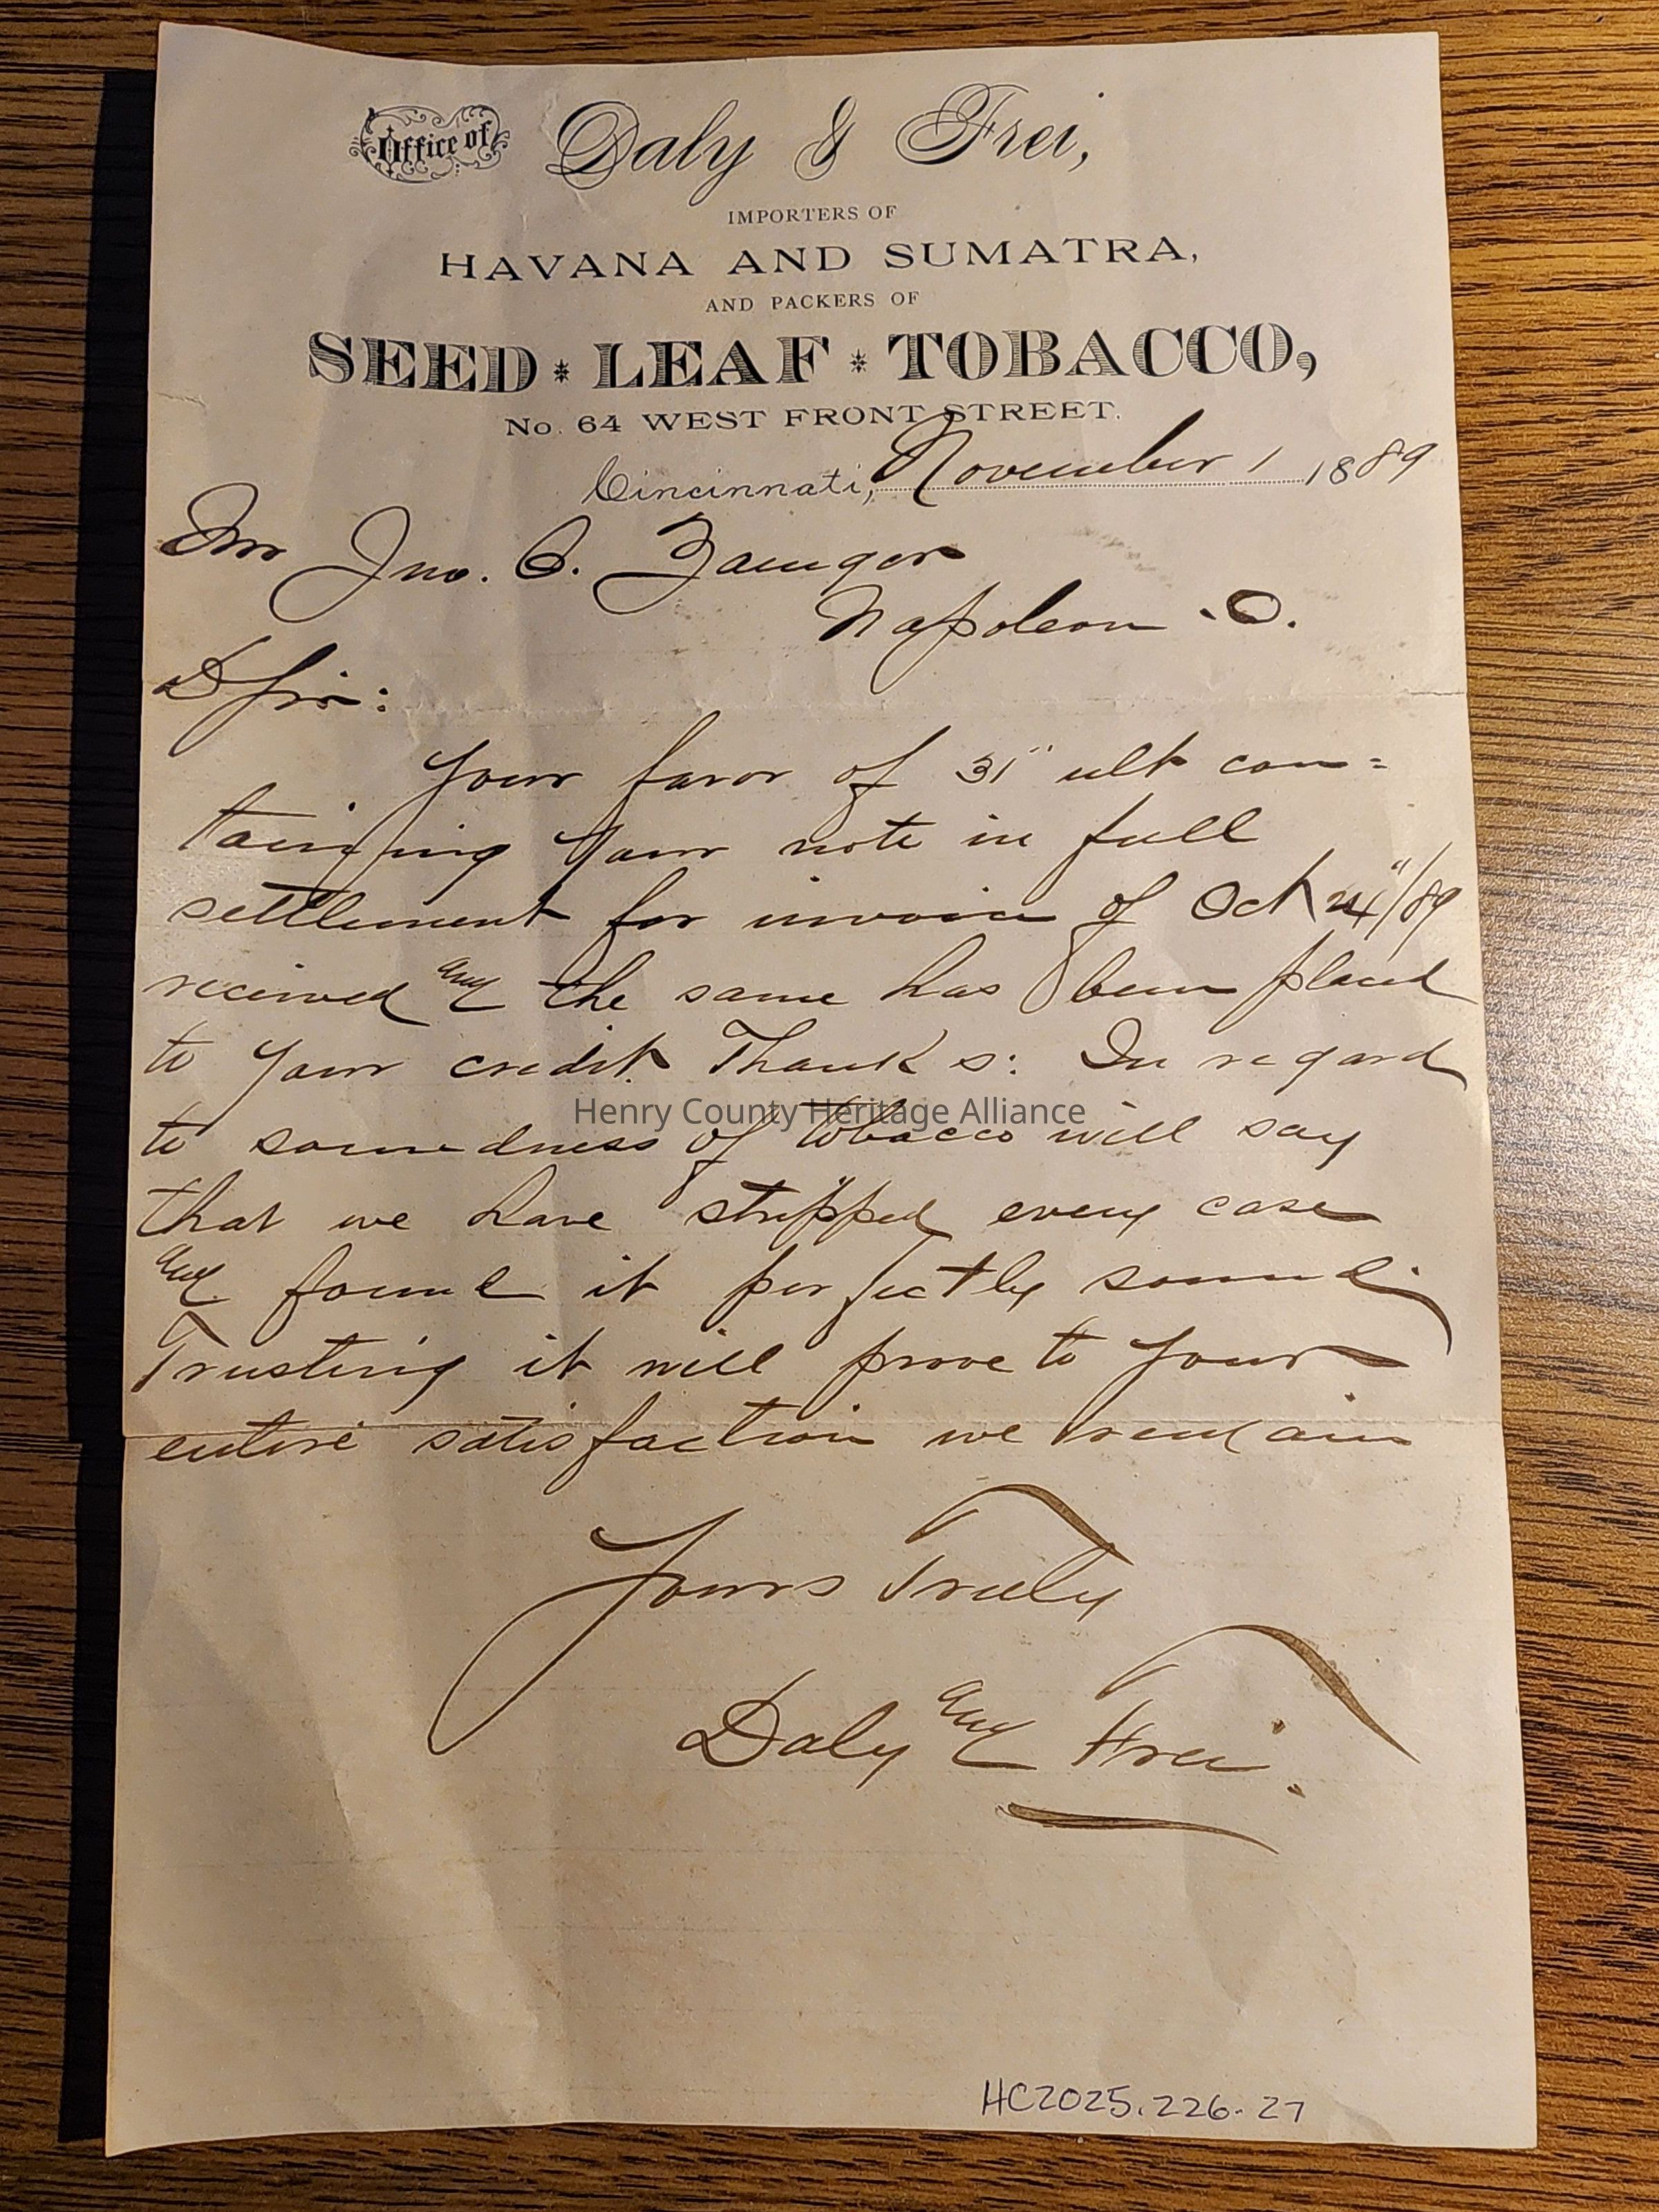 Office of Daly & Frei,
IMPORTERS OF
HAVANA AND SUMATRA,
AND PACKERS OF
SEED * LEAF * TOBACCO,
No. 64 WEST FRONT STREET.
Cincinnati, November 1 1889
Mr Jno. C. Zaenger
Napoleon . O.
D Sir:
Your favor of 31" ult con=
taining your note in full
settlement for invoice of Oct 24"/89
received and the same has been placed
to your credit. Thanks: In regard
Henry County Heritage Alliance
to soundness of tobacco will say
that we have stripped every case
and found it perfectly sound.
Trusting it will prove to your
entire satisfaction we remain
Yours Truly
Daly and Frei.
HC2025.226.27